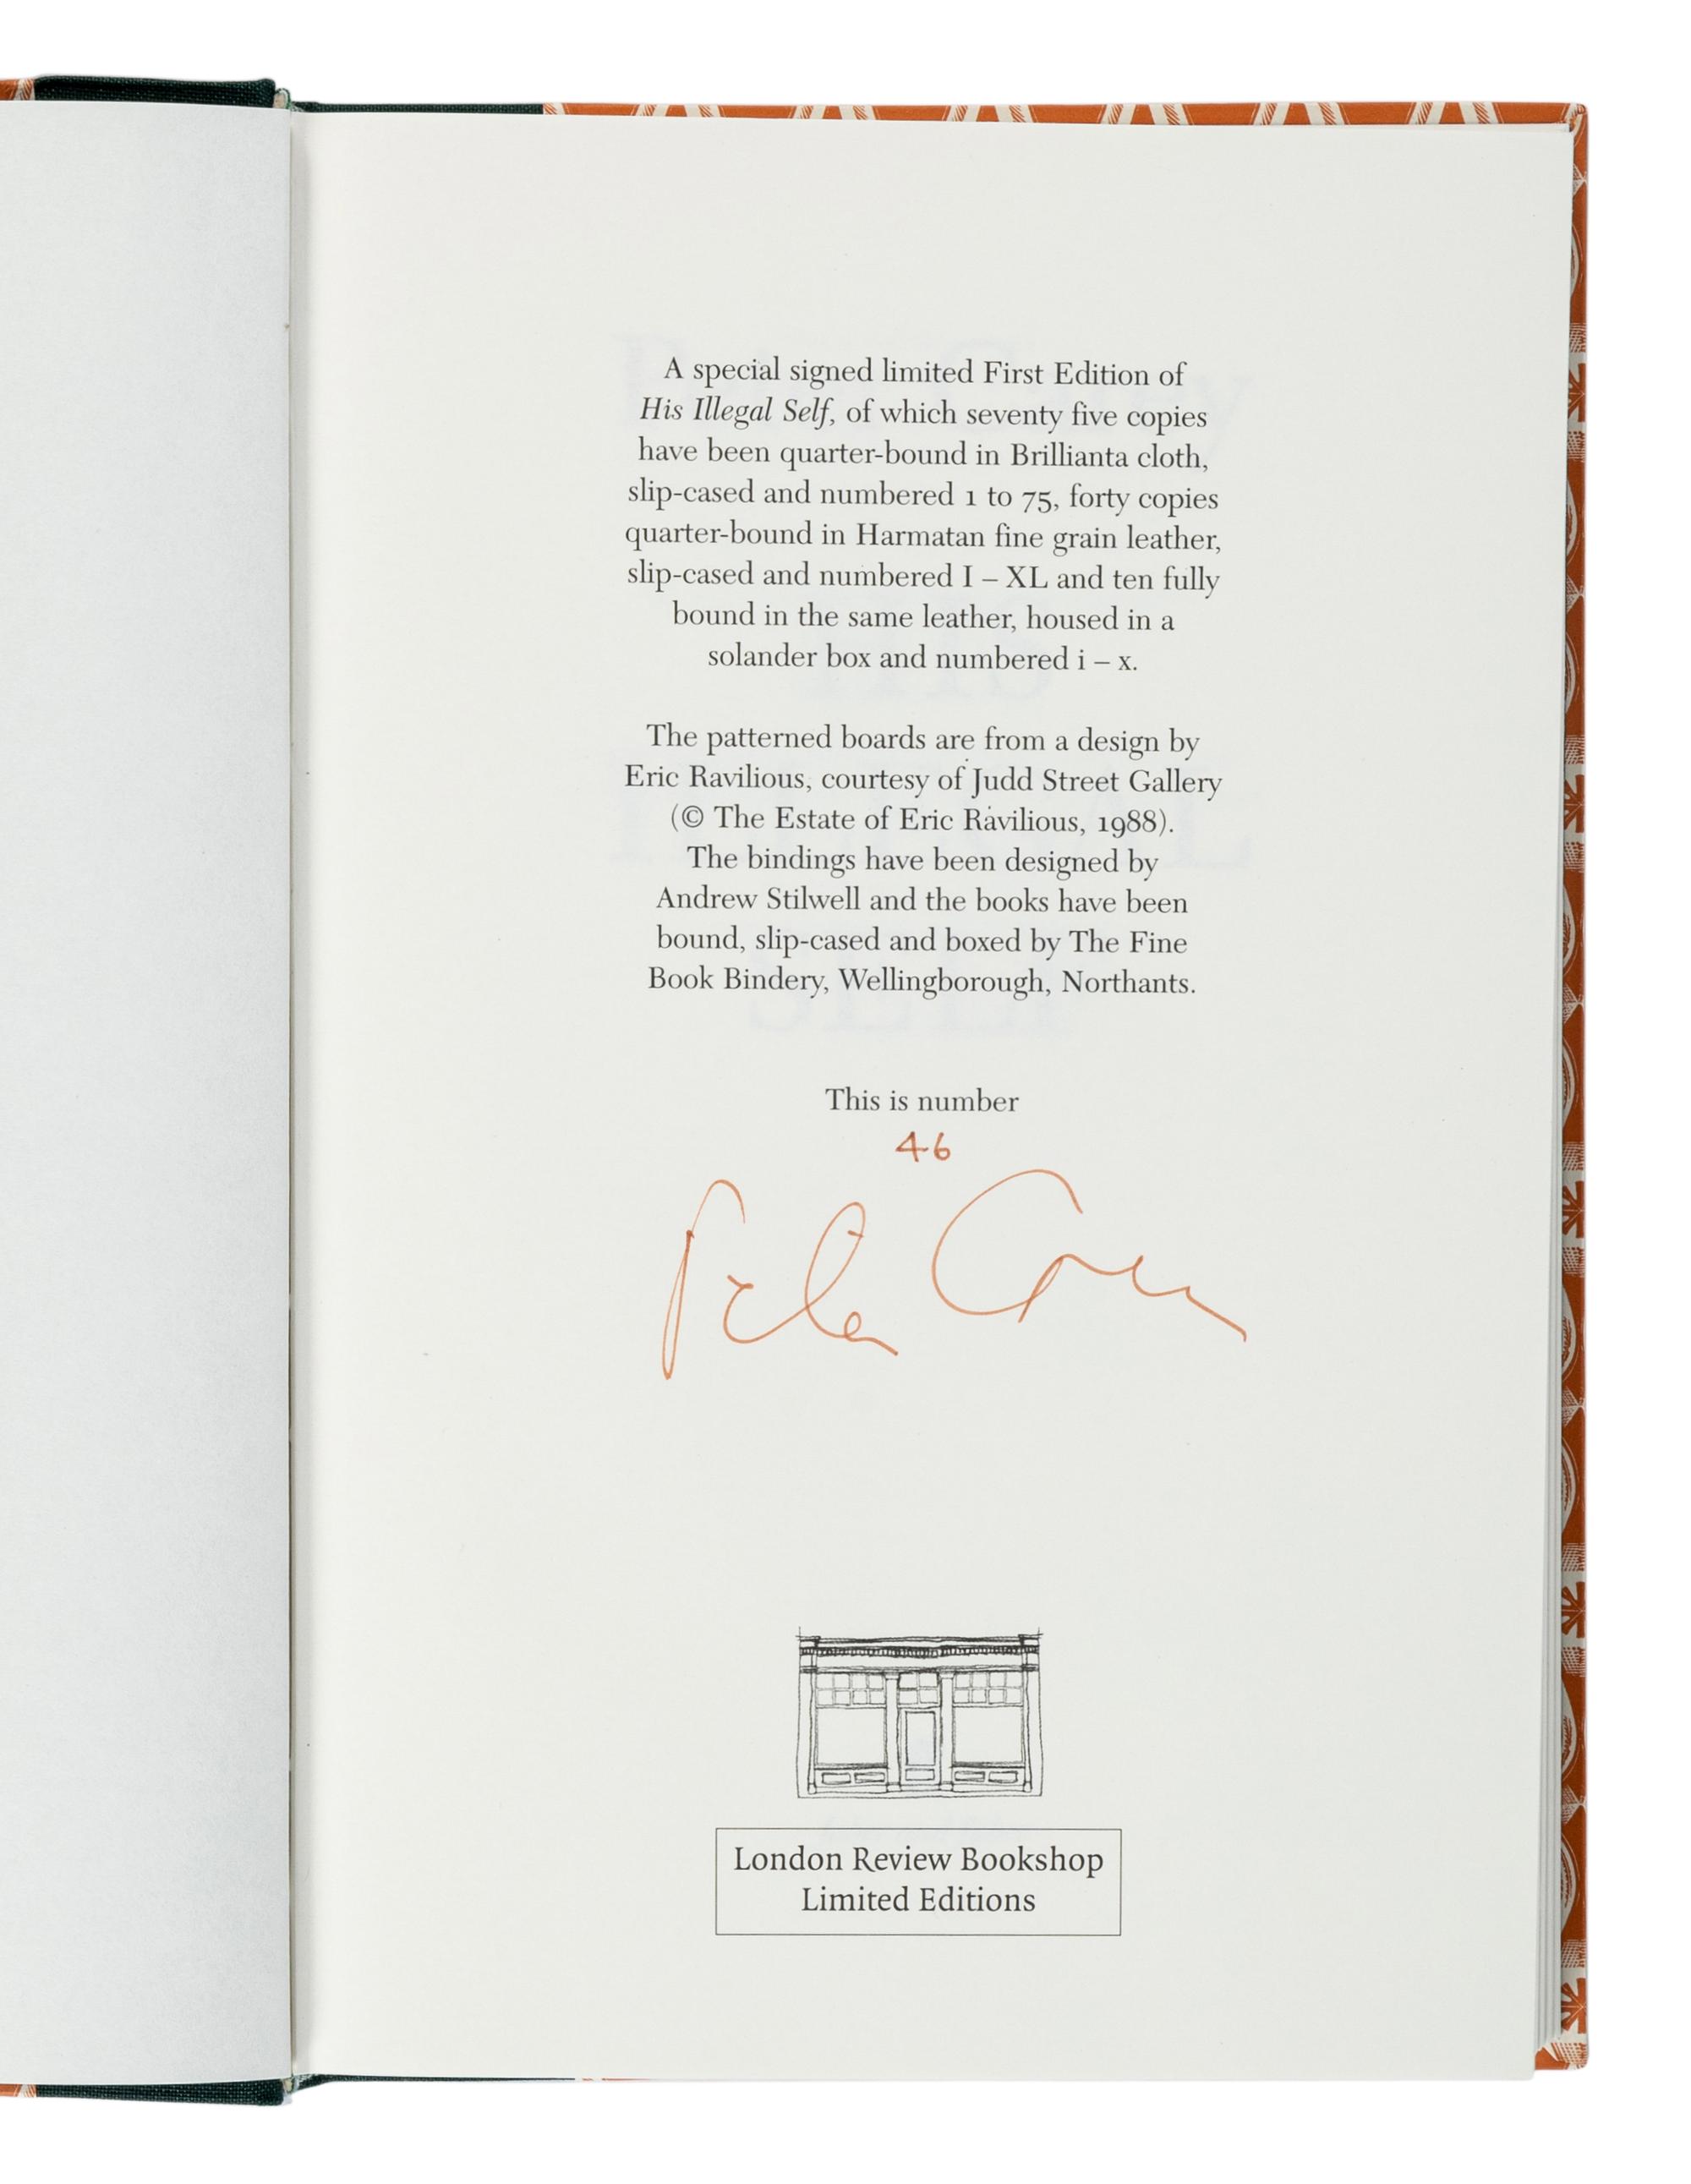 A special signed limited First Edition of
His Illegal Self, of which seventy five copies
have been quarter-bound in Brillianta cloth,
slip-cased and numbered 1 to 75, forty copies
quarter-bound in Harmatan fine grain leather,
slip-cased and numbered I – XL and ten fully
bound in the same leather, housed in a
solander box and numbered i – x.
The patterned boards are from a design by
Eric Ravilious, courtesy of Judd Street Gallery
(© The Estate of Eric Ravilious, 1988).
The bindings have been designed by
Andrew Stilwell and the books have been
bound, slip-cased and boxed by The Fine
Book Bindery, Wellingborough, Northants.
This is number
46
Peter Carey
London Review Bookshop
Limited Editions